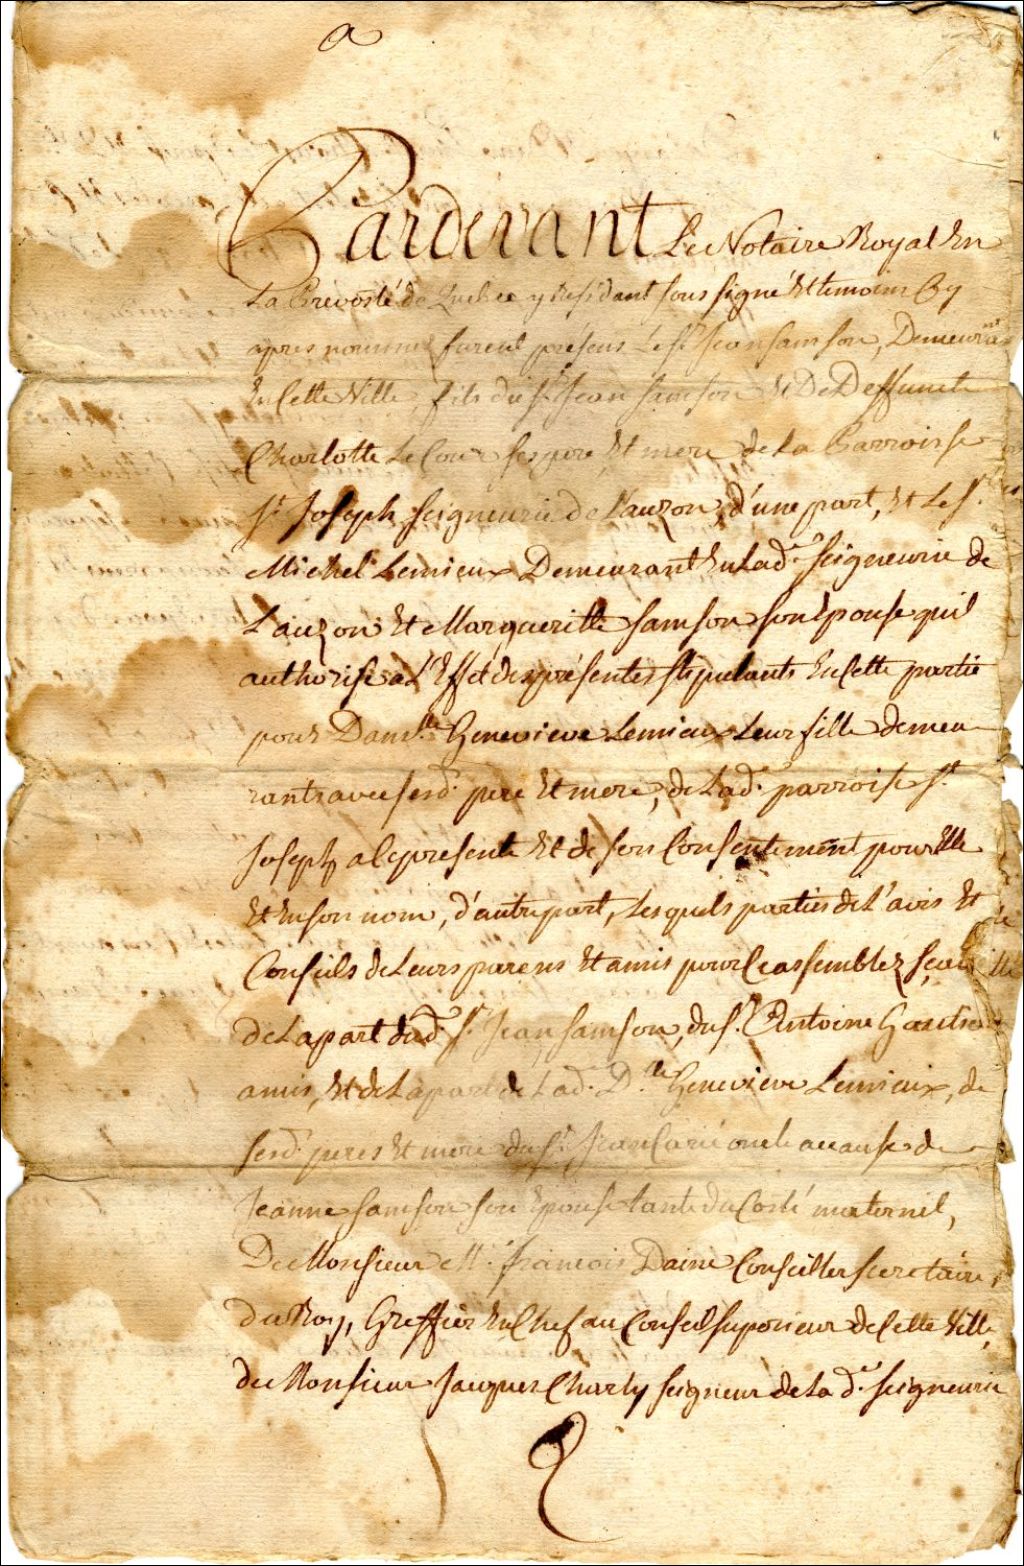 Pardevant Le Notaire Royal En
La Prevosté de Quebec y Residant sous signé Et temoins Cy
apres nommez furent présens Le Sr. Jean Samson, Demeurant
En Cette Ville, fils du Sr. Jean Samson Et De Deffuncte
Charlotte Le Cour ses pere Et mere de La Parroisse
St. Joseph Seigneurie de Lauzon, d'une part, Et Le Sr.
Michel Lemieux Demeurant En Lade. Seigneurie de
Lauzon Et Margueritte Samson son Epouse qu'il
authorise a L'Effet des présentes stipulants En Cette partie
pour Damlle. Genevieve Lemieux Leur fille demeu
rant avec sesd. pere Et mere, de Lad. parroisse St.
Joseph a Ce presente Et de son Consentement pour Elle
Et En son nom, d'autre part, Lesquels parties de L'avis Et
Conseils de Leurs parens Et amis pour Ce assemblez sçavoir
de La part dud. Sr. Jean Samson, du Sr. Antoine
amis, Et de La part de Lade. Dlle. Genevieve Lemieux, de
sesd. peres Et mere du Sr. Jean Carié oncle a cause de
Jeanne Samson son Epouse tante du Costé maternel,
De Monsieur Me. François Daine Conseiller Secretaire
du Roy, Greffier En Chef au Conseil Superieur de Cette Ville,
de Monsieur Jacques Charly Seigneur de La de. Seigneurie